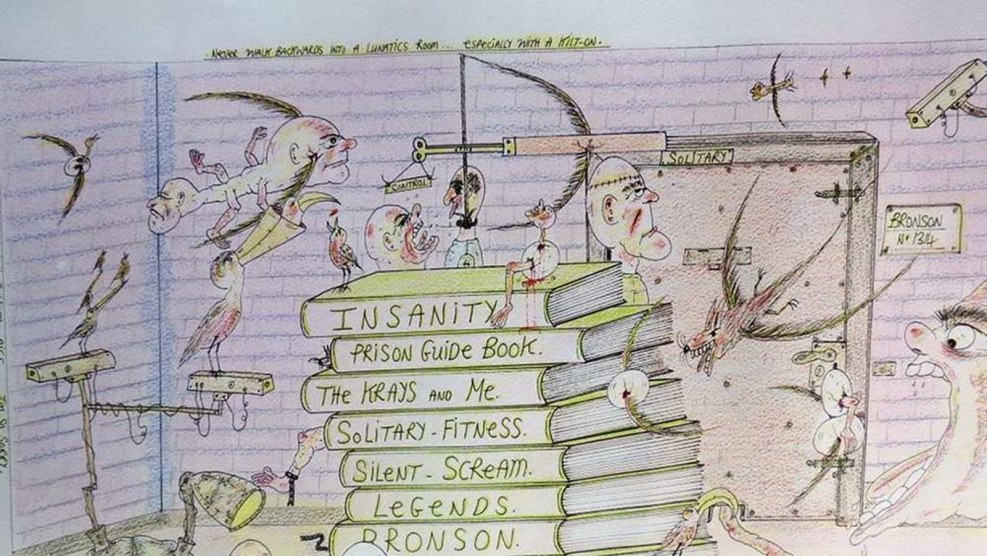 NEVER WALK BACKWARDS INTO A LUNATICS ROOM... ESPECIALLY WITH A KILT-ON.
CONTROL
SOLITARY
BRONSON
No 1314
INSANITY
PRISON GUIDE BOOK.
THE KRAYS AND ME.
SOLITARY-FITNESS.
SILENT-SCREAM.
LEGENDS.
BRONSON.